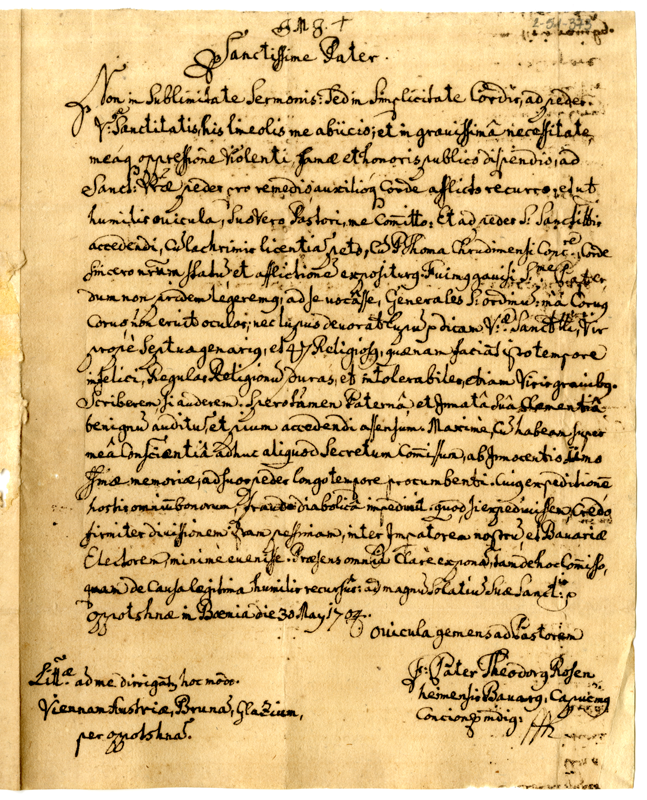 J. M. J. +
2-51-373
Sanctissime Pater.
Non in Sublimitate Sermonis: Sed in Simplicitate Cordis, ad pedes
V.æ Sanctitatis, his lineolis me abiicio; et in gravissimâ necessitate,
meaq oppressione violenti, famæ et honoris publico dispendio, ad
Sanct: Vræ pedes pro remedio, auxilioq Corde afflicto recurro; et ut
humilis ovicula, Suo vero Pastori, me Comitto: Et ad pedes S. Sanctitis
accedendi, Cu lachrimis licentia peto, Cu P. Thoma Chrudimensi Conc.re, Corde
Sincero nrum statu et afflictione expositurg:
dum non aridem legeremg; ad se vocasse, Generales S. ordinu: nã Corvg
Corvo non eruit oculos; nec lupus devorat lupu
prope Septuagenarig, et 47 Religiosg, quænam facia pro tempore
infelici, Regulas Religionu duras, et intolerabiles, etiam Viris gravibg.
Scriberem si auderem: Spero tamen Paternâ, et Innatâ Suâ Clementiâ
benignu auditu, et pium accedendi assensum. Maxime, Cu habeam super
meâ Conscientiâ adhuc aliquod Secretum Comissum, ab Innocentio
memoriæ, ad suos pedes longo tempore procumbenti. Cuig expeditione
hostis omniu bonorum, fraude diabolicâ impedivit. quod si expedivissem, Credo
firmiter divissionem tam pessimam, inter Impatorem nostru, et Bavariæ
Electorem, minime evenisse. Præsens omnia Clare exponã, tam de hoc Comisso,
quam de Causa legitima humilis recursus: ad magnu Solatiu Suæ Sanct:is p
Oppotshnæ in Boemia die 30 May 1704.
Ovicula gemens ad Pastorem
F: Pater Theodorg Rosen
heimensis Bavarg, Capucing
Concionator indig:
Litt.æ ad me dirrigant, hoc modo.
Viennam Austriæ, Bruna, Glazium,
per Oppotshna.